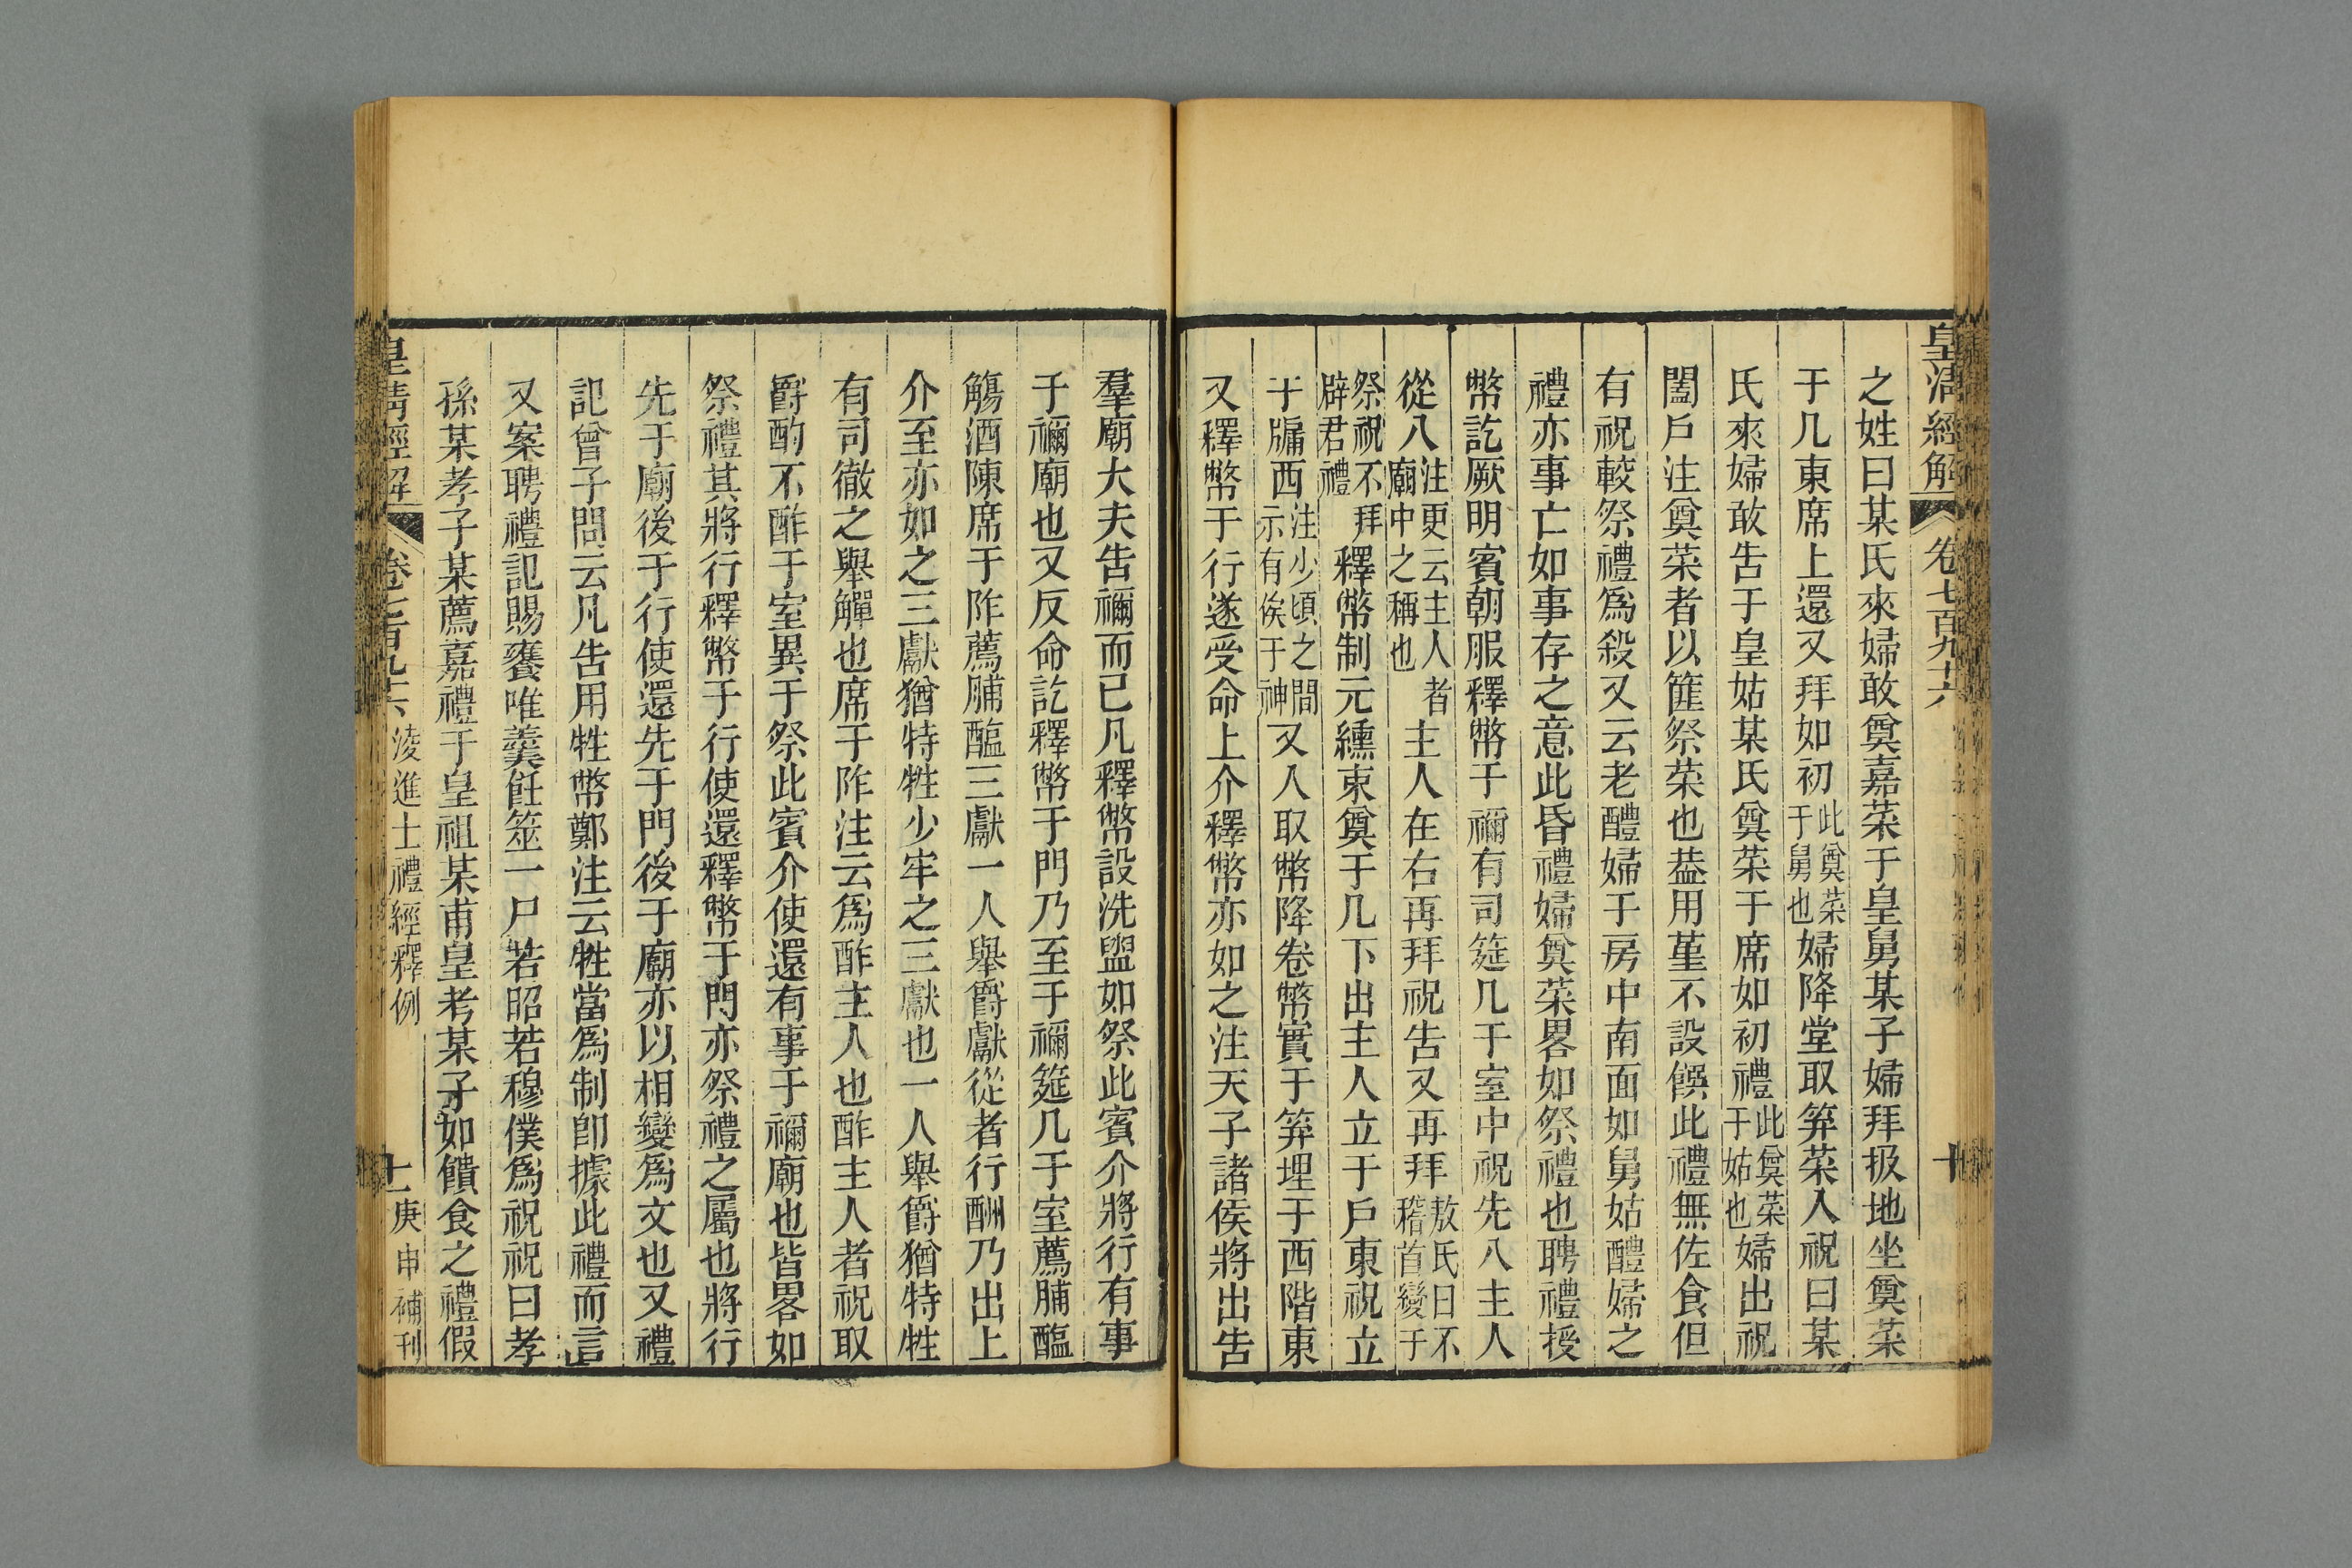 皇清經解 卷七百九十六 十
之姓曰某氏來婦敢奠嘉菜于皇舅某子婦拜扱地坐奠菜
于几東席上還又拜如初此奠菜于舅也婦降堂取笲菜入祝曰某
氏來婦敢告于皇姑某氏奠菜于席如初禮此奠菜于姑也婦出祝
闔戶注奠菜者以篚祭菜也葢用堇不設饌此禮無佐食但
有祝較祭禮爲殺又云老醴婦于房中南面如舅姑醴婦之
禮亦事亡如事存之意此昏禮婦奠菜畧如祭禮也聘禮授
幣訖厥明賓朝服釋幣于禰有司筵几于室中祝先入主人
從入注更云主人者廟中之稱也主人在右再拜祝告又再拜敖氏曰不稽首變于
祭祝不拜辟君禮釋幣制元纁束奠于几下出主人立于戶東祝立
于牖西注少頃之間示有俟于神又入取幣降卷幣實于笲埋于西階東
又釋幣于行遂受命上介釋幣亦如之注天子諸侯將出告
羣廟大夫告禰而已凡釋幣設洗盥如祭此賓介將行有事
于禰廟也又反命訖釋幣于門乃至于禰筵几于室薦脯醢
觴酒陳席于阼薦脯醢三獻一人舉爵獻從者行酬乃出上
介至亦如之三獻猶特牲少牢之三獻也一人舉爵猶特牲
有司徹之舉觶也席于阼注云爲酢主人也酢主人者祝取
爵酌不酢于室異于祭此賓介使還有事于禰廟也皆畧如
祭禮其將行釋幣于行使還釋幣于門亦祭禮之屬也將行
先于廟後于行使還先于門後于廟亦以相變爲文也又禮
記曾子問云凡告用牲幣鄭注云牲當爲制卽據此禮而言
又案聘禮記賜饔唯羹飪筮一尸若昭若穆僕爲祝祝曰孝
孫某孝子某薦嘉禮于皇祖某甫皇考某子如饋食之禮假
皇清經解 卷七百九十六 淩進士禮經釋例 十一 庚申補刊